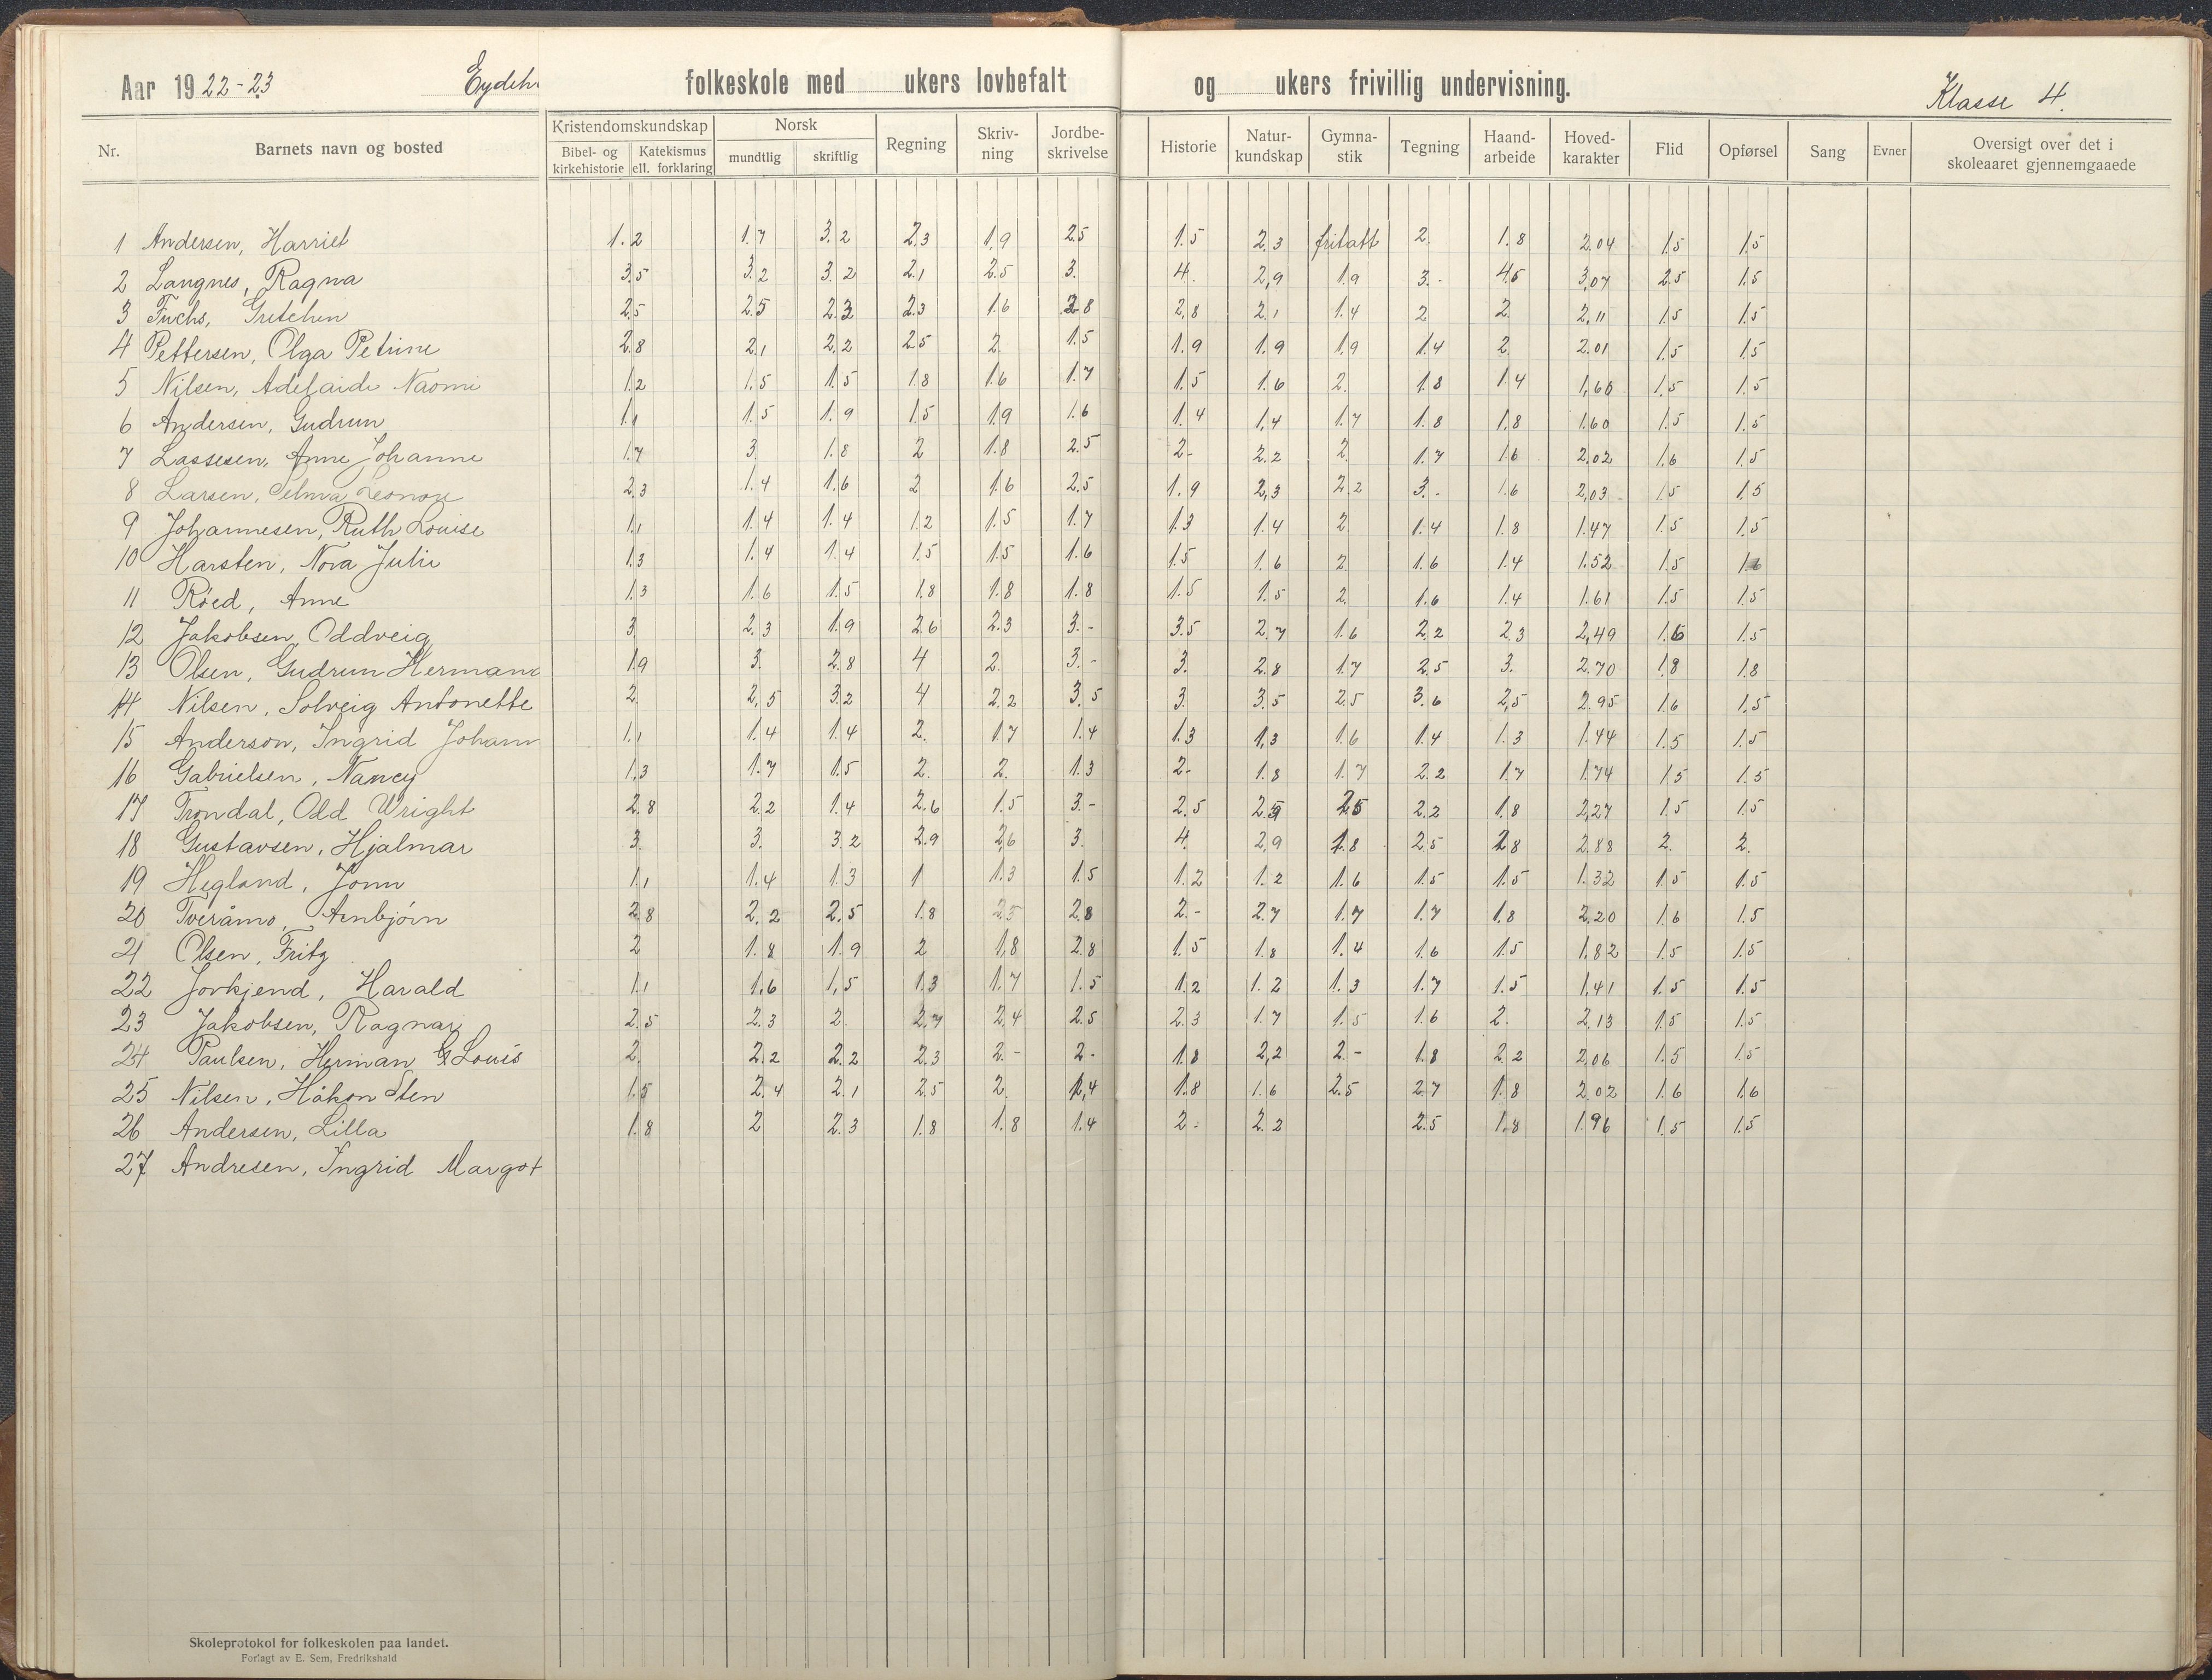 Aar 1922-23 folkeskole med ukers lovbefalt og ukers frivillig undervisning. Klasse 4.
Nr. Barnets navn og bosted Kristendomskundskap Bibel- og kirkehistorie Katekismus ell. forklaring Norsk mundtlig skriftlig Regning Skriv-ning Jordbe-skrivelse Historie Natur-kundskap Gymna-stik Tegning Haand-arbeide Hoved-karakter Flid Opførsel Sang Evner Oversigt over det i skoleaaret gjennemgaaede
1 Andersen, Harriet 1.2 1.7 3.2 2.3 1.9 2.5 1.5 2.3 fritatt 2. 1.8 2.04 1.5 1.5
2 Langnes, Ragna 3.5 3.2 3.2 2.1 2.5 3. 4. 2,9 1.9 3.- 4.5 3,07 2.5 1.5
3 Fuchs, Gretchen 2.5 2.5 2.3 2.3 1.6 2.8 2,8 2.1 1.4 2 2. 2,11 1.5 1.5
4 Pettersen, Olga Petrine 2.8 2.1 2,2 2.5 2. 1.5 1.9 1.9 1.9 1.4 2. 2.01 1.5 1.5
5 Nilsen, Adelaide Naomi 1.2 1.5 1.5 1.8 1.6 1.7 1.5 1.6 2. 1.8 1.4 1,60 1.5 1.5
6 Andersen, Gudrun 1.1 1.5 1.9 1.5 1.9 1.6 1.4 1,4 1.7 1.8 1.8 1.60 1.5 1.5
7 Lassesen, Anne Johanne 1.7 3. 1.8 2 1.8 2.5 2- 2.2 2. 1.7 1.6 2,02 1.6 1.5
8 Larsen, Selma Leonore 2.3 1.4 1.6 2 1.6 2.5 1.9 2,3 2.2 3.- 1.6 2,03 1.5 1.5
9 Johannesen, Ruth Louise 1.1 1.4 1.4 1.2 1.5 1.7 1.3 1.4 2. 1.4 1.8 1.47 1.5 1.5
10 Harsten, Nora Julie 1.3 1.4 1.4 1.5 1.5 1.6 1.5 1.6 2. 1.6 1.4 1.52 1.5 1.6
11 Röed, Anne 1.3 1.6 1.5 1.8 1.8 1.8 1.5 1.5 2. 1.6 1.4 1.61 1.5 1.5
12 Jakobsen, Oddveig 3. 2.3 1.9 2.6 2.3 3.- 3.5 2.7 1.6 2.2 2.3 2,49 1.6 1.5
13 Olsen, Gudrun Herman 1.9 3. 2.8 4 2. 3.- 3. 2.8 1.7 2.5 3. 2.70 1.8 1.8
14 Nilsen, Solveig Antonette 2. 2,5 3.2 4 2.2 3.5 3. 3.5 2.5 3.6 2,5 2.95 1.6 1.5
15 Anderson, Ingrid Johann 1.1 1.4 1.4 2. 1.7 1.4 1.3 1.3 1.6 1.4 1.3 1.44 1.5 1.5
16 Gabrielsen, Nancy 1,3 1.7 1.5 2. 2. 1.3 2- 1.8 1.7 2.2 1.7 1.74 1.5 1.5
17 Trondal, Odd Wright 2.8 2.2 1.4 2.6 1.5 3.- 2.5 2.5 2.2 1.8 2,27 1.5 1.5
18 Gustavsen, Hjalmar 3. 3. 3.2 2.9 2,6 3. 4. 2,9 1.8 2.5 2.88 2. 2.
19 Hegland, Jonn 1.1 1.4 1.3 1 1.3 1.5 1.2 1.2 1.6 1.5 1.5 1.32 1.5 1.5
20 Tveråmo, Arnbjörn 2.8 2.2 2.5 1.8 2.5 2.8 2.- 2.7 1.7 1.7 1.8 2.20 1.6 1.5
21 Olsen, Fritz 2 1.8 1.9 2 1,8 2.8 1.5 1.8 1.4 1.6 1.5 1.82 1.5 1.5
22 Jovkjend, Harald 1.1 1,6 1,5 1.3 1.7 1.5 1.2 1.2 1.3 1.7 1.5 1,41 1.5 1.5
23 Jakobsen, Ragnar 2.5 2.3 2. 2.7 2,4 2.5 2.3 1.7 1.5 1.6 2. 2,13 1.5 1.5
24 Paulsen, Herman G Louis 2. 2.2 2.2 2.3 2.- 2.- 1.8 2,2 2.- 1.8 2.2 2,06 1.5 1.5
25 Nilsen, Håkon Sten 1.5 2.4 2.1 2.5 2. 1,4 1.8 1.6 2.5 2.7 1.8 2,02 1.6 1.6
26 Andersen, Lilla 1.8 2 2.3 1.8 1.8 1.4 2.- 2.2 2.5 1.8 1.96 1.5 1.5
27 Andresen, Ingrid Margot
Skoleprotokol for folkeskolen paa landet.
Forlagt av E. Sem, Fredrikshald